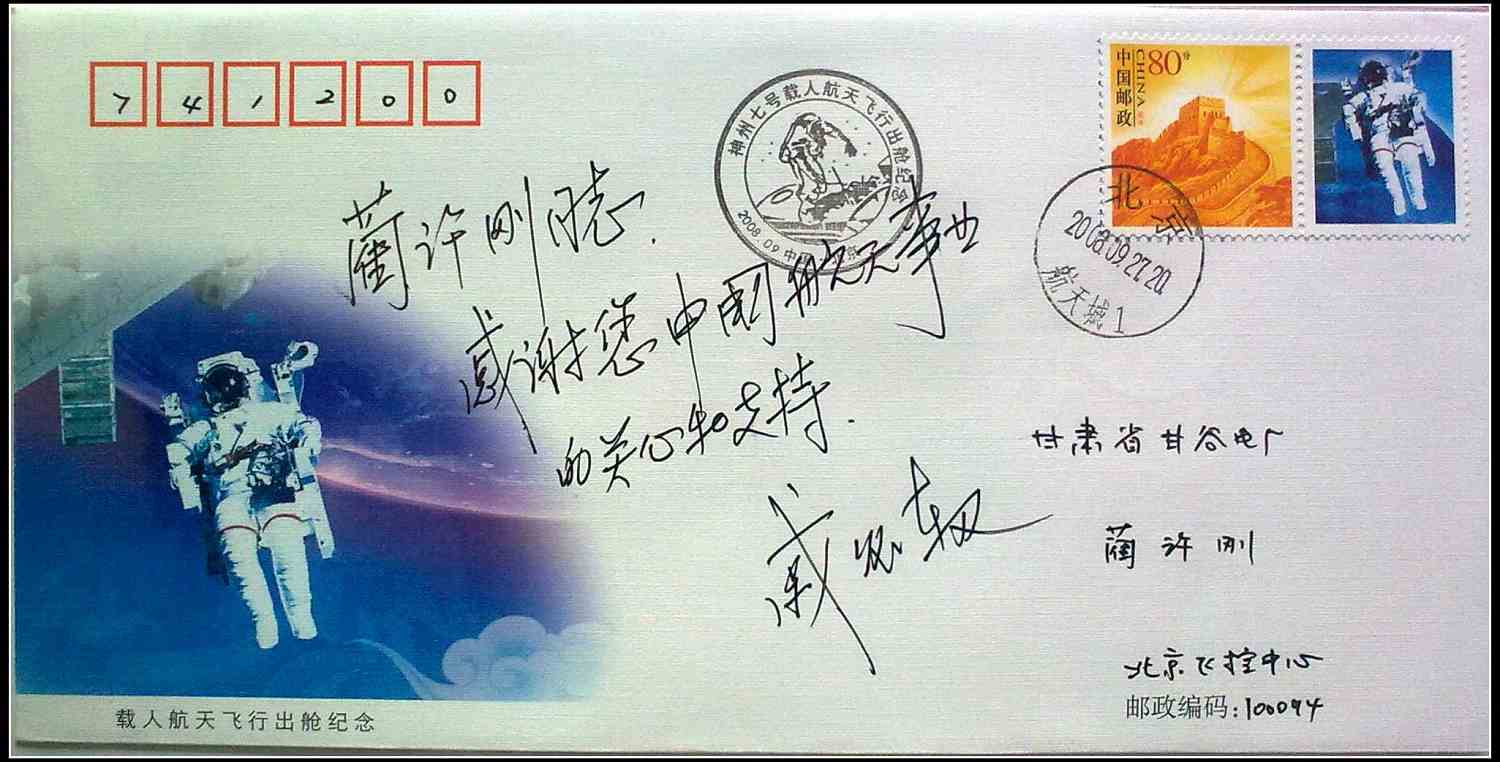 741200
中国邮政
80分
CHINA
神州七号载人航天飞行出舱纪念
2008.09 中国 北京
北京
2008.09.27.20
航天城1
蔺许刚同志.
感谢您中国航天事业
的关心和支持.
甘肃省甘谷电厂
蔺许刚
北京飞控中心
邮政编码:100094
载人航天飞行出舱纪念